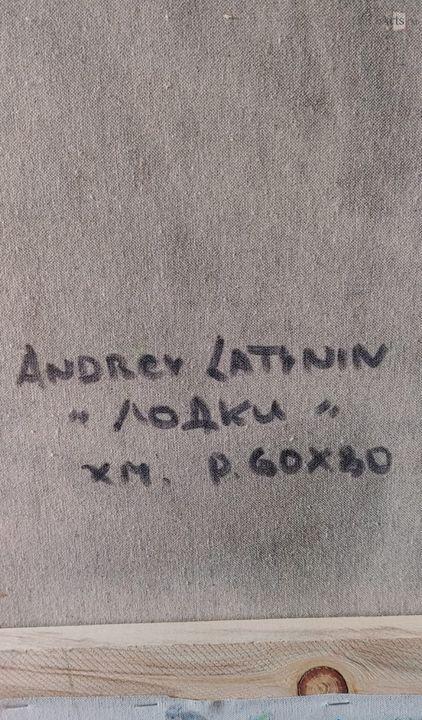 ANDREY LATYNIN
" ЛОДКИ "
ХМ. Р.60X80